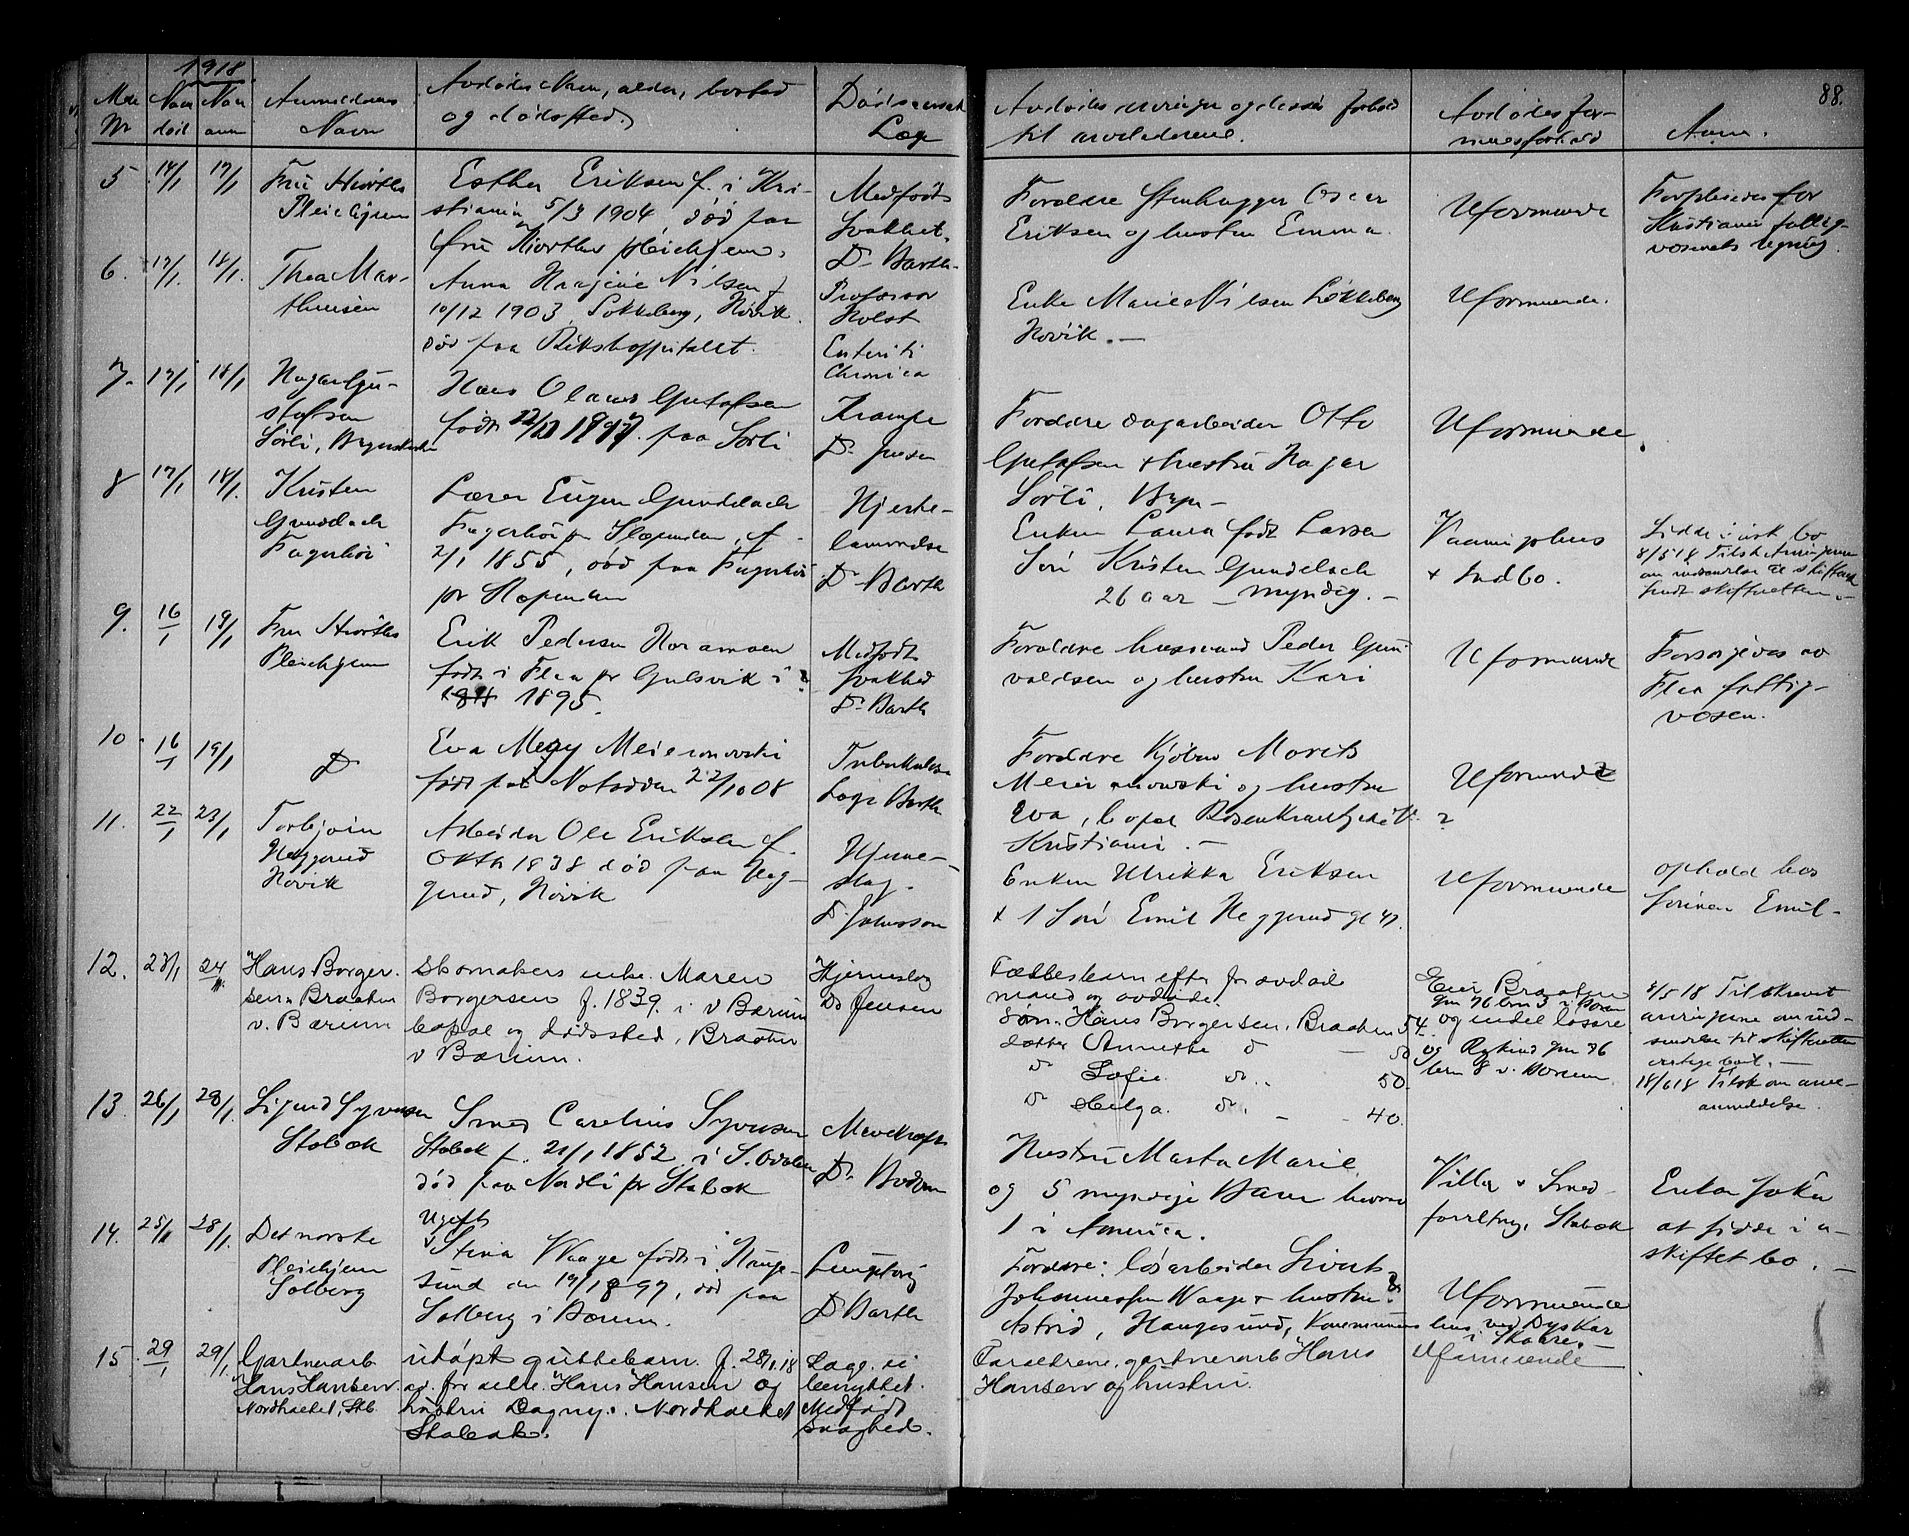 1918.
88.
Melde Nr
Naar död
Naar anm
Anmelderens Navn
Avdödes Navn, alder, bosted og dödssted.
Dödsaarsak Læge
Avdödes arvinger og deres forhold til arveladeren.
Avdödes formuesforhold
Anm.
5 14/1 17/1
Fru Hiorths Pleiehjem
Esther Eriksen f. i Kri-
stiania 5/3 1904 död paa
fru Hiorths pleiehjem.
Medfödt
svakhet.
Dr Barth
Forældre Stenhugger Oscar
Eriksen og hustru Emma.
Uformuende
Forpleiedes for
Kristiania fattig-
væsenets regning.
6. 17/1. 18/1.
Thea Mar-
thinsen
Anna Nilsen f
10/12 1903 Løkkeberg, Hövik.
död paa Rikshospitalet.
Professor
Holst
Enteriti
Chronica
Enke Marie Nilsen Løkkeberg
Hövik. —
Uformuende.
7. 17/1 18/1
Hagar Gu-
stafsen
Sörli,
Hans Olaus Gustafsen
födt 22/12 1917. paa Sörli
Krampe
Dr Jensen
Forældre dagarbeider Otto
Gustafsen & hustru Hagar
Sörli,
Uformuende.
8 17/1 18/1.
Kristen
Gundelach
Fagerhöi
Lærer Eugen Gundelach
Fagerhöi pr Slependen, f.
2/1 1855, död paa Fagerhöi
pr Slependen
Hjerte-
lammelse
Dr Barth
Enken Laura födt Larsen
Sön Kristen Gundelach
26 aar — myndig. —
Vaaningshus
+ Indbo.
Sidder i usk. bo
8/5 18 Tilsk. Arvingerne
om indsendelse til skifteret
9. 16/1 19/1
Fru Hiorths
Pleiehjem
Erik Pedersen
födt i Flaa pr Gulsvik i ?
1895.
Medfödt
svakhed
Dr Barth
Forældre husmand Peder Gun-
valdsen og hustru Kari
Uformuende
Forsörgedes av
Flaa fattig-
væsen.
10. 16/1 19/1
Do
Eva Mery
födt paa Notodden 22/10 08
Tuberkulose
Læge Barth
Forældre Kjöbm Morits
og hustru
Eva, bopæl Rosenkrantzgt.
Kristiania. —
Uformuende
?
11. 22/1 23/1
Torbjörn
Heggerud
Hövik
Arbeider Ole Eriksen f.
Oktb 1838 död paa Heg-
gerud, Hövik
Hjerne-
slag.
Dr Johnsson
Enken Ulrikka Eriksen
+ 1 Sön Emil Heggerud
Uformuende
ophold hos
sönnen Emil-
12. 23/1 24/1
Hans Borger-
sen Braaten
v. Bærum
Skomakers enke. Maren
Borgersen f. 1839. i v Bærum
bopæl og dödssted, Braaten
v Bærum.
Hjerneslag
Dr Jensen
Fællesbarn efter før avdöd
mand og avdöde.
Sön. Hans Borgersen. Braaten 54.
datter Annethe do — 50
do Sofie. do.. 50
do Helga. do. — 40.
Eier Braaten
gnr 76 brn 3 i Bærum
og endel lösøre
og gnr 76
brn 8 v. Bærum.
8/5 18 Tilskrevet
arvingerne om ind-
sendelse til skifteretten
18/6 18 Tilsk om arve-
anmeldelse.
13. 26/1 28/1.
Sigurd Syversen
Stabæk
Smed Carelius Syversen
Stabæk f. 21/1 1852 i S. Odalen
död paa Nordli pr Stabæk
Dr Bodom
Hustru Marta Marie.
og 5 myndige Barn hvorav
1 i America.
Villa + Smed-
forretng. Stabæk
Enken søker
at sidde i u-
skiftet bo. —
14. 25/1 28/1.
Det norske
Pleiehjem
Solberg
Ugift
Stina Waage födt i Hauge-
sund den 19/1 1897, död paa
Solberg i Bærum.
Lungetbrg
Dr Barth
Forældre: lösarbeider Sivert
Johannessen Waage & hustru
Astrid, Haugesund, Kommunens hus ved Dyskar
i Skaare. —
Uformuende
15. 29/1 29/1
Gartnerarb.
Hans Hansen
Nordhaket, Stb.
udöpt guttebarn. f. 28/1.18
av for ældre. Hans Hansen og
hustru Dagny. Nordhaket
Stabæk.
Læge. ei
benyttet.
Medfödt
svaghed.
Forældrene, gartnerarb Hans
Hansen og hustru.
Uformuende